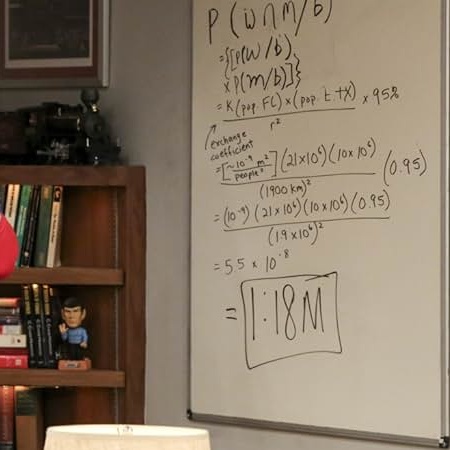 P (w∩m/b)
= {[P(w/b)
x P(m/b)]}
= K(pop. FL) x (pop. E. TX) x 95%
r²
exchange
coefficient
= [~10⁻⁹ m² / people²] (21x10⁶) (10x10⁶) (0.95)
(1900 km)²
= (10⁻⁹) (21x10⁶) (10x10⁶) (0.95)
(1.9x10⁶)²
= 5.5 x 10⁻⁸
= 1:18M